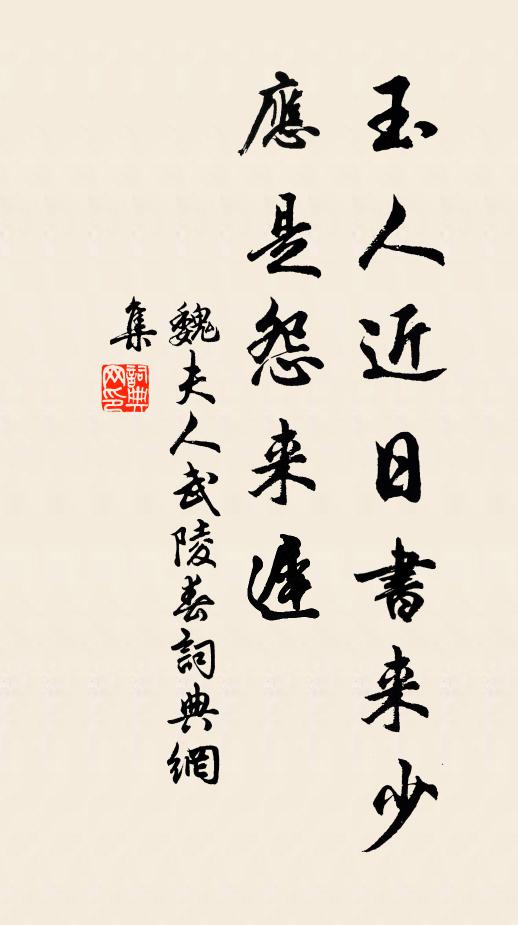 玉人近日書来少
應是怨来遲
魏夫人武陵春詞典網
集
詞典網印